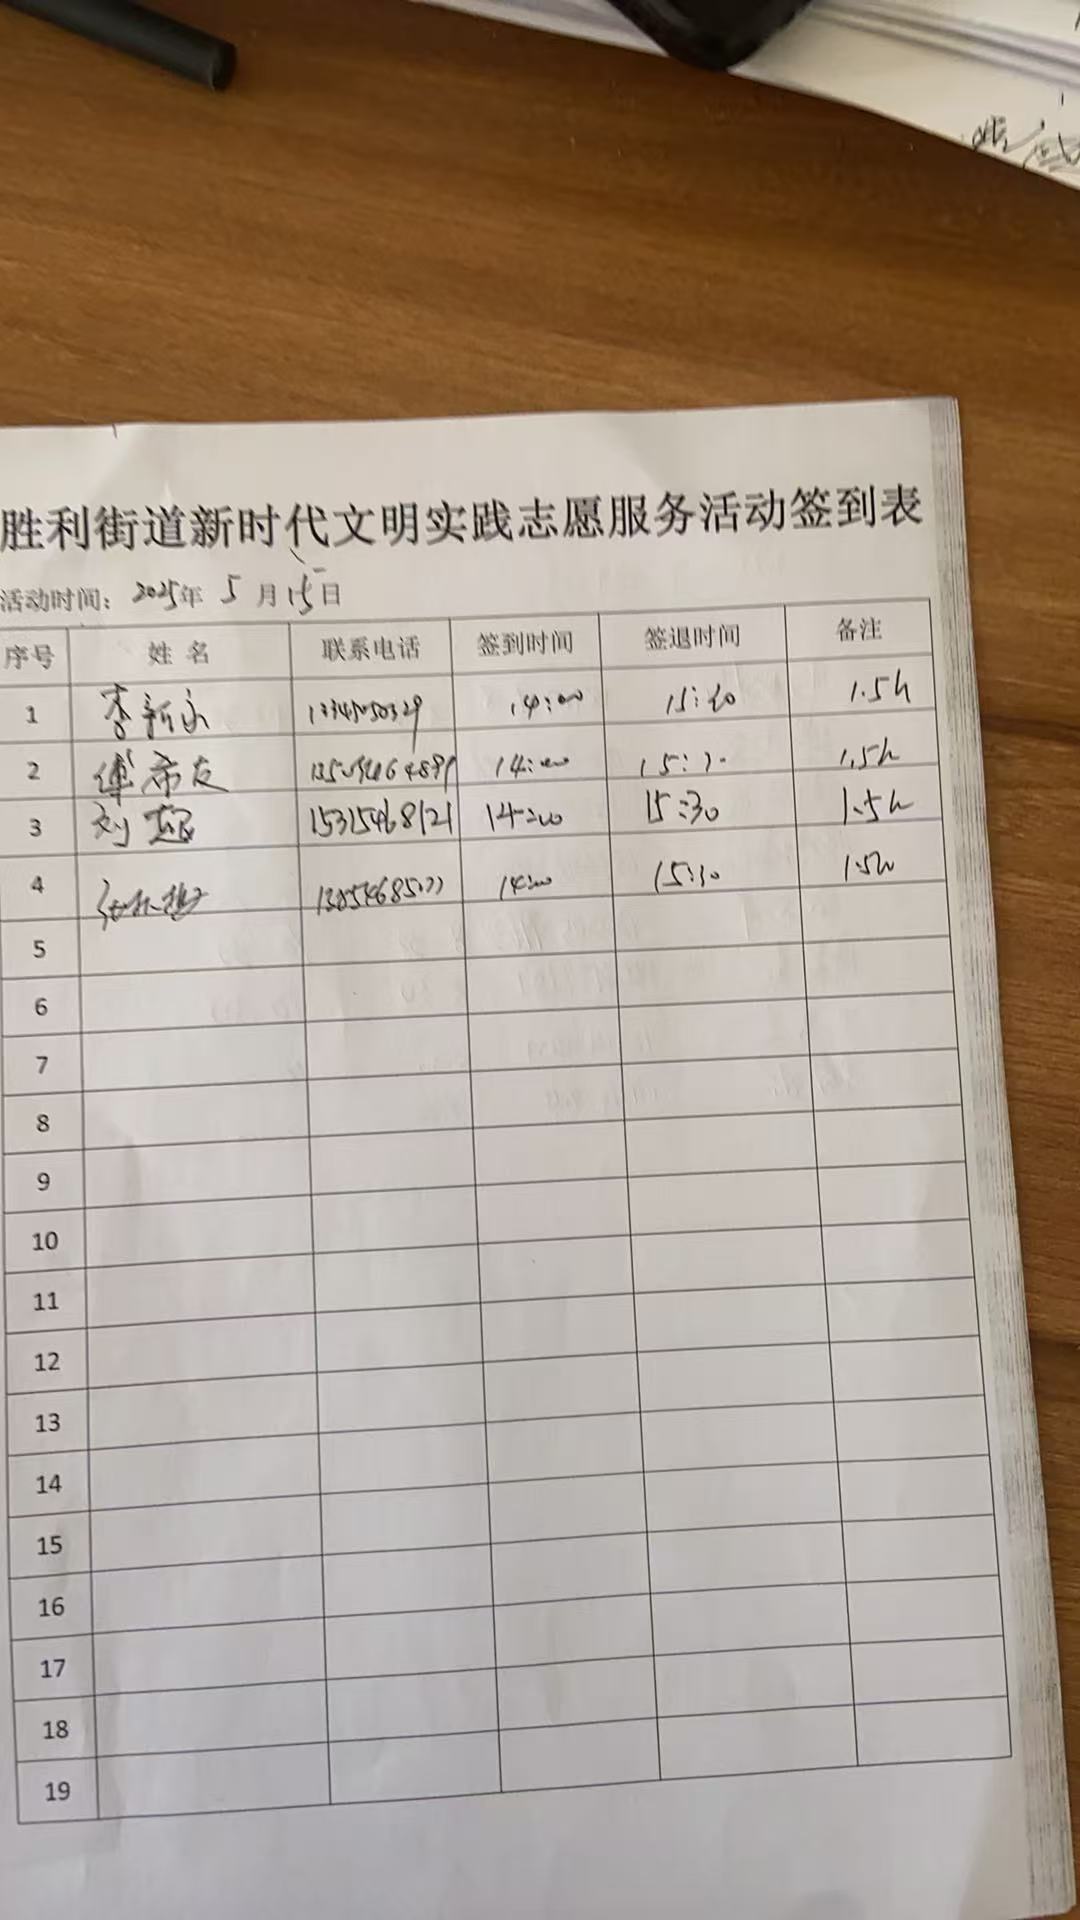 胜利街道新时代文明实践志愿服务活动签到表
活动时间: 2025年 5 月 15 日
序号 姓 名 联系电话 签到时间 签退时间 备注
1 李新永 14:00 15:30 1.5h
2 傅希友 14:00 15:30 1.5h
3 刘 15315468121 14:00 15:30 1.5h
4 14:00 15:30 1.5h
5
6
7
8
9
10
11
12
13
14
15
16
17
18
19